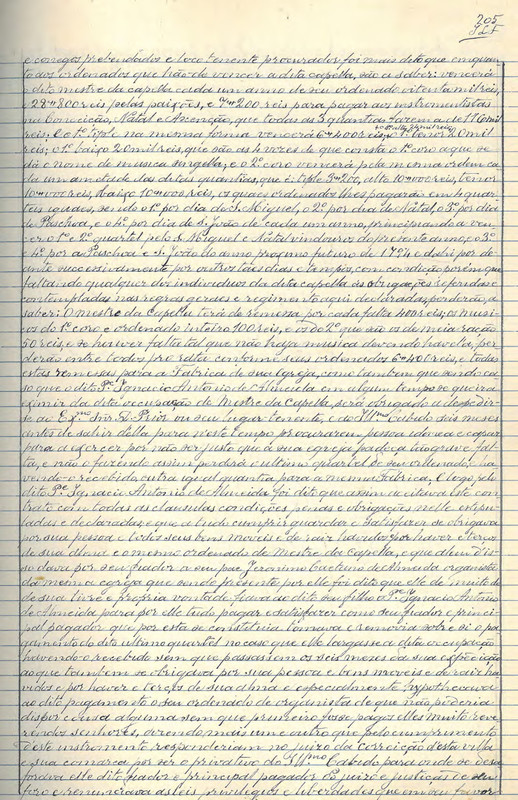 205
e conegos prebendados e loco tenente procurador foi mais dito que emquan
to aos ordenados que hão de vencer a dita capella, são a saber: vencerá
o dito mestre da capella cada um anno de seu ordenado oitenta mil reis,
e 28$800 reis pelas paixões, e 7$200 reis para pagar aos instromentistas
na Conceição, Natal e Ascenção, que todas as 3 quantias fazem a de 116 mil
reis; E o 1º tiple na mesma forma vencerá 6$400 reis tenor 20 mil
reis; o 1º baixo 20 mil reis, que são as 4 vozes de que consta o 1º coro a que se
dá o nome de musica singella; e o 2º coro vencerá pela mesma ordem ca
da um ametade das ditas quantias, que é: tiple 3$200, alto 10$000 reis, tenor
10$000 reis, baixo 10$000 reis, os quaes ordenados lhes pagarão em 4 quar
teis iguaes, sendo o 1º por dia de S. Miguel, o 2º por dia de Natal, o 3º por dia
de Paschoa, e o 4º por dia de S. João de cada um anno, principiando a ven
cer o 1º e 2º quartel pelo S. Miguel e Natal vindouros do presente anno, e o 3º
e 4º por a Paschoa e S. João do anno proximo futuro de e dahi por de
ante successivamente por outros taes dias e tempos, com condição porêm que
faltando qualquer dos individuos da dita capella ás obrigações referidas e
contempladas nas regras geraes e regimento aqui declaradas, perderão, a
saber: O mestre da Capella terá de remessa por cada falta 400 reis; os musi
cos do 1º coro e ordenado inteiro 100 reis, e os do 2º que são os de meia ração
50 reis, e se houver falta tal que não haja musica devendo havela, per
derão entre todos pro rata conforme seus ordenados 6$400 reis, e todas
estas remessas para a Fabrica de sua Egreja, como tambem que sendo ca
so que o dito Pe. Ignacio Antonio de Almeida em algum tempo se queira
eximir da dita occupação de Mestre da Capella, será obrigado a despedir
se ao Exmo Snr. D. Prior ou seu lugar tenente, e ao Illmo Cabido seis meses
antes de sahir della para neste tempo procurarem pessoa idonea e capaz
para a exercer por não ser justo que a sua egreja padeça tão grave fal
ta, e não o fazendo assim perderá o ultimo quartel do seu ordenado, ha
vendo o recebido outra igual quantia para a mesma Fabrica. E logo pelo
dito Pe. Ignacio Antonio de Almeida foi dito que assim aceitava este con
trato com todas as clausulas condições, penas e obrigações nelle estipu
ladas e declaradas e que a tudo cumprir guardar e satisfazer se obrigava
por sua pessoa e todos seus bens moveis e de raiz havidos e por haver e terços
de sua alma e o mesmo ordenado de Mestre da Capella, e que alem dis
so dava por seu fiador a seu pae Jeronimo Caetano de Almeida organista
da mesma egreja que sendo presente por elle foi dito que elle de muito de
de sua livre e propria vontade fiava ao dito seu filho o Pe. Ignacio Antonio
de Almeida para por elle tudo pagar e satisfazer como seu fiador e princi
pal pagador que por esta se constituia, tomava e removia sobre si o pa
gamento do dito ultimo quartel no caso que elle largasse a dita occupação
havendo o recebido sem que passassem os seis mezes da sua expedição
ao que tambem se obrigava por sua pessoa e bens moveis e de raiz ha
vidos e por haver e terços de sua alma e especialmente hypothecava
ao dito pagamento o seu ordenado de organista de que não poderia
dispor cousa alguma sem que primeiro fosse pagos elles muito reve
rendos senhores, dizendo mais um e outro que pelo cumprimento
deste instromento responderiam no juizo da correição desta villa
e sua comarca por ser o privativo do Illmo Cabido para onde se desa
forava elle dito fiador e principal pagador e juizo e justiças de seu
foro e renunciava as leis privilegios e liberdades que em seu favor